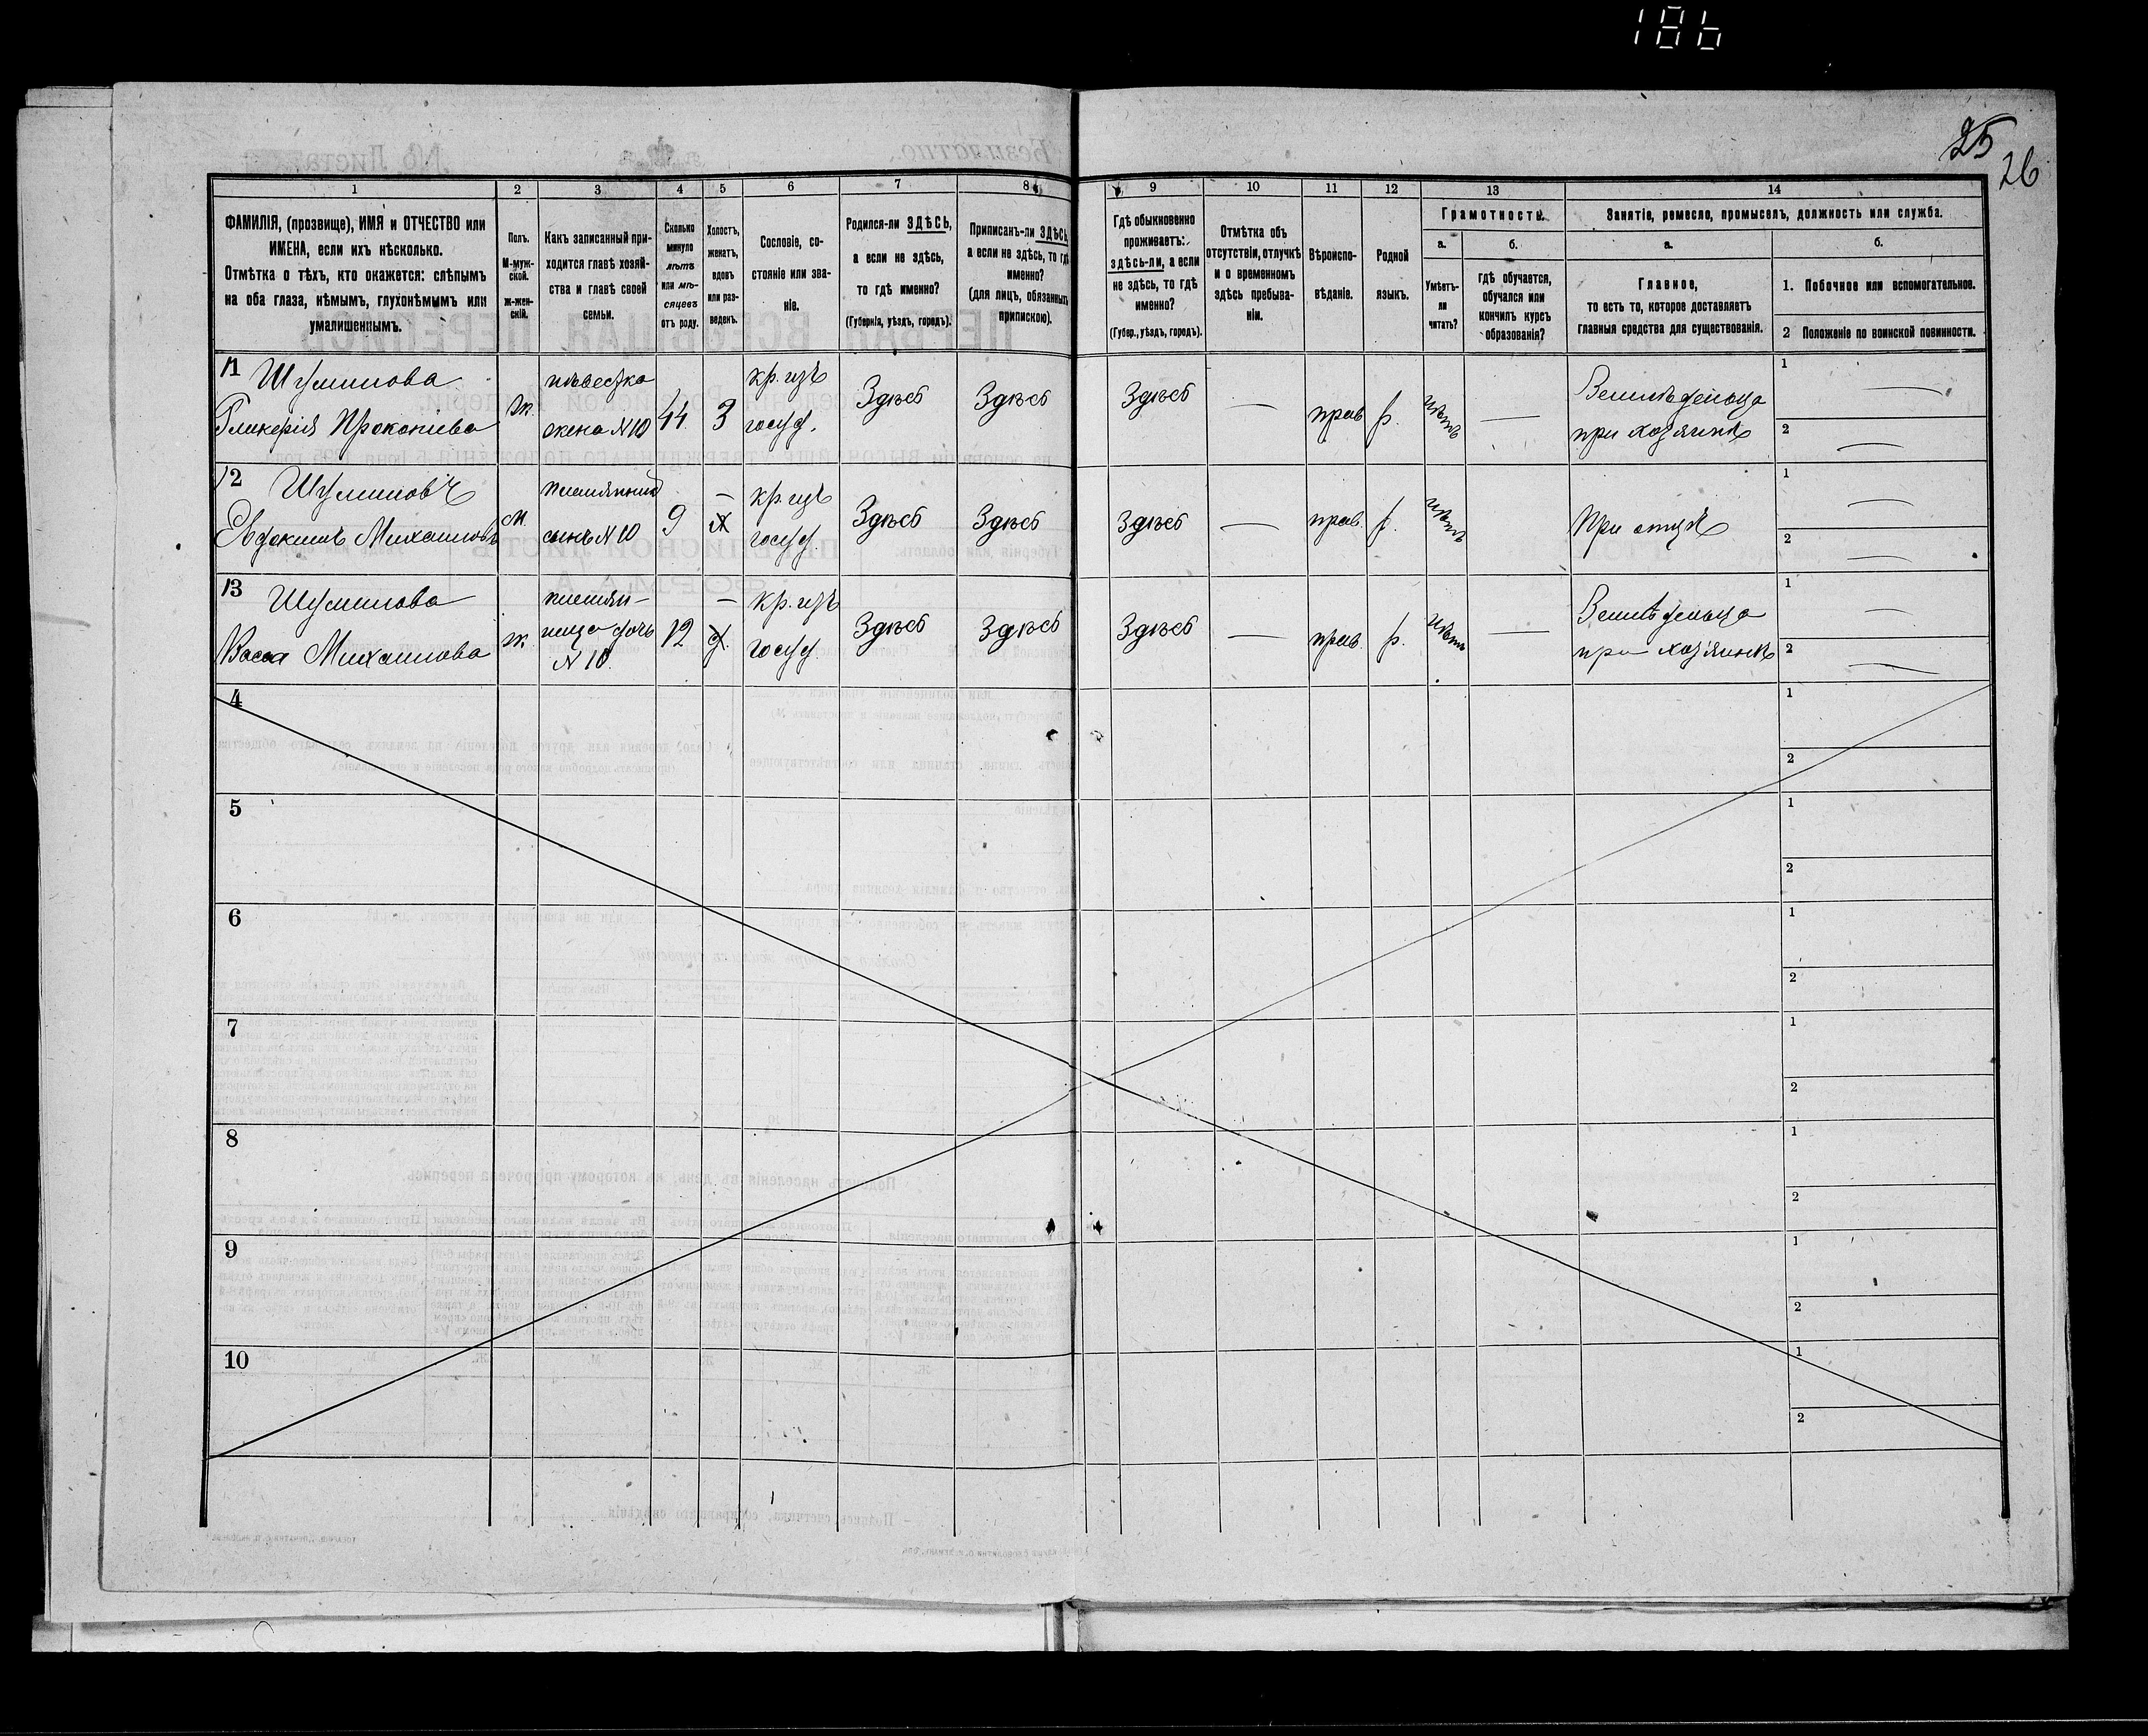 186
25
26
1 2 3 4 5 6 7 8 9 10 11 12 13 14
ФАМИЛІЯ, (прозвище), ИМЯ и ОТЧЕСТВО или
ИМЕНА, если ихъ нѣсколько.
Отмѣтка о тѣхъ, кто окажется: слѣпымъ
на оба глаза, нѣмымъ, глухонѣмымъ или
умалишеннымъ.
Полъ.
М-муж-
ской.
ж-жен-
скій.
Какъ записанный при-
ходится главѣ хозяй-
ства и главѣ своей
семьи.
Сколько
минуло
лѣтъ
или мѣ-
сяцевъ
отъ роду.
Холостъ,
женатъ,
вдовъ
или раз-
веденъ.
Сословіе, со-
стояніе или зва-
ніе.
Родился-ли ЗДѢСЬ,
а если не здѣсь,
то гдѣ именно?
(Губернія, уѣздъ, городъ).
Приписанъ-ли ЗДѢСЬ,
а если не здѣсь, то гдѣ
именно?
(для лицъ, обязанныхъ
припискою).
Гдѣ обыкновенно
проживаетъ:
здѣсь-ли, а если
не здѣсь, то гдѣ
именно?
(Губер., уѣздъ, городъ).
Отмѣтка объ
отсутствіи, отлучкѣ
и о временномъ
здѣсь пребыва-
ніи.
Вѣроиспо-
вѣданіе.
Родной
языкъ.
Грамотность.
а.
Умѣетъ-
ли
читать?
б.
гдѣ обучается,
обучался или
кончилъ курсъ
образованія?
Занятіе, ремесло, промыселъ, должность или служба.
а.
Главное,
то есть то, которое доставляетъ
главныя средства для существованія.
б.
1. Побочное или вспомогательное.
2 Положеніе по воинской повинности.
11 Шумилова
Гликерія Прокопіева
ж.
невестка
жена N 10
44
З
кр. изъ
госуд.
Здѣсь
Здѣсь
Здѣсь
—
прав
р.
нѣтъ
—
Земледелица
при хозяинѣ
1 —
2 —
12 Шумиловъ
Евдокимъ Михаиловъ
м.
сынъ N 10
9
—
кр. изъ
госуд.
Здѣсь
Здѣсь
Здѣсь
—
прав.
р.
нѣтъ
При отцѣ
1 —
2 —
13 Шумилова
Васса Михаилова
ж.
ница дочь
N 10.
12
—
кр. изъ
госуд.
Здѣсь
Здѣсь
Здѣсь
—
прав.
р.
нѣтъ
—
Земледелица
при хозяинѣ
1 —
2 —
4
1
2
5
1
2
6
1
2
7
1
2
8
1
2
9
1
2
10
1
2